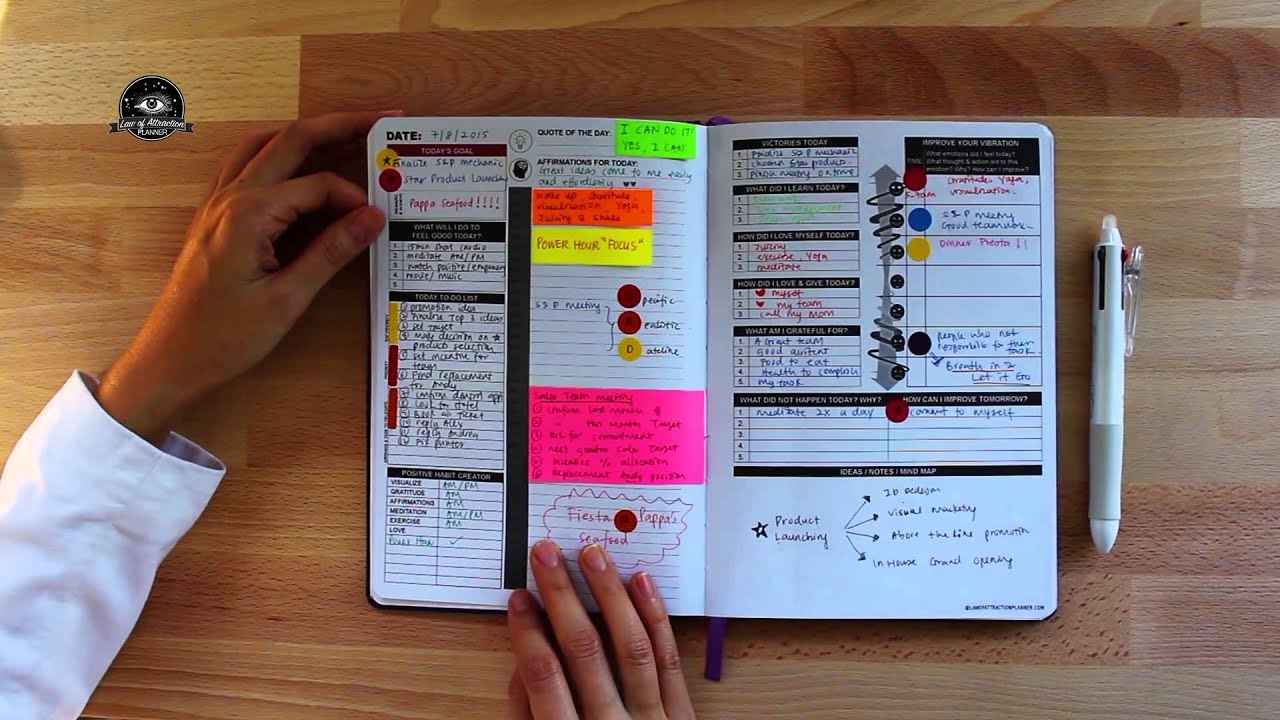 Law of Attraction
PLANNER
DATE: 7/8/2015
TODAY'S GOAL
Finalize S&P mechanic
Star Product Launching
Pappa Seafood!!!!
WHAT WILL I DO TO
FEEL GOOD TODAY?
1. 15min cardio
2. meditate AM/PM
3. watch positive/
4. movie/ music
5.
TODAY TO-DO LIST
① promotion idea
② Finalize Top 3 ideas
③ Set Target
④ Make decision on
product selection
⑤ Set incentive for
⑥ Find replacement
for Andy
⑦ confirm
⑧ Look to Hotel
⑨ Book Ticket
⑩ reply Alex
⑪ reply Andrea
⑫ Fix printer
POSITIVE HABIT CREATOR
VISUALIZE AM/PM
GRATITUDE AM
AFFIRMATIONS AM
MEDITATION AM/PM
EXERCISE AM
LOVE
Power Hour ✓
QUOTE OF THE DAY:
I CAN DO IT!
YES, I CAN
AFFIRMATIONS FOR TODAY:
Great ideas come to me easily
and effortlessly ♥♥
Wake up gratitude,
visualisation, Yoga,
Juicing & shake
POWER HOUR "FOCUS"
S&P meeting
S pecific
R ealistic
D ateline
Sales Team meeting
① confirm last month #
② " this month Target
③ ask for commitment
④ next quarter sales Target
⑤ incentive % allocation
⑥ Replacement Andy position
Fiesta @ Pappa's
Seafood
VICTORIES TODAY
1. Finalize S&P mechanic
2. choosen Star product.
3. Finish meeting on time
WHAT DID I LEARN TODAY?
1.
2.
3.
HOW DID I LOVE MYSELF TODAY?
1. Juicing
2. exercise, Yoga
3. meditate
HOW DID I LOVE & GIVE TODAY?
1. ♥ myself
2. ♥ my team
3. call my mom
WHAT AM I GRATEFUL FOR?
1. A Great team
2. Good
3. Food to eat
4. Health to complish
5. My task
IMPROVE YOUR VIBRATION
What emotions did I feel today?
What thought & action led to this
emotion? Why? How can I improve?
TIME
Gratitude, Yoga,
visualisation.
S&P meeting
Good teamwork.
Dinner Presto!!
people who not
responsible for their
task.
Breath in &
Let it Go
WHAT DID NOT HAPPEN TODAY? WHY?
HOW CAN I IMPROVE TOMORROW?
1. meditate 2x a day
commit to myself
2.
3.
4.
5.
IDEAS / NOTES / MIND MAP
Product
Launching
Visual Marketing
Above the line promotion
In House Grand Opening
@LAWOFATTRACTIONPLANNER.COM